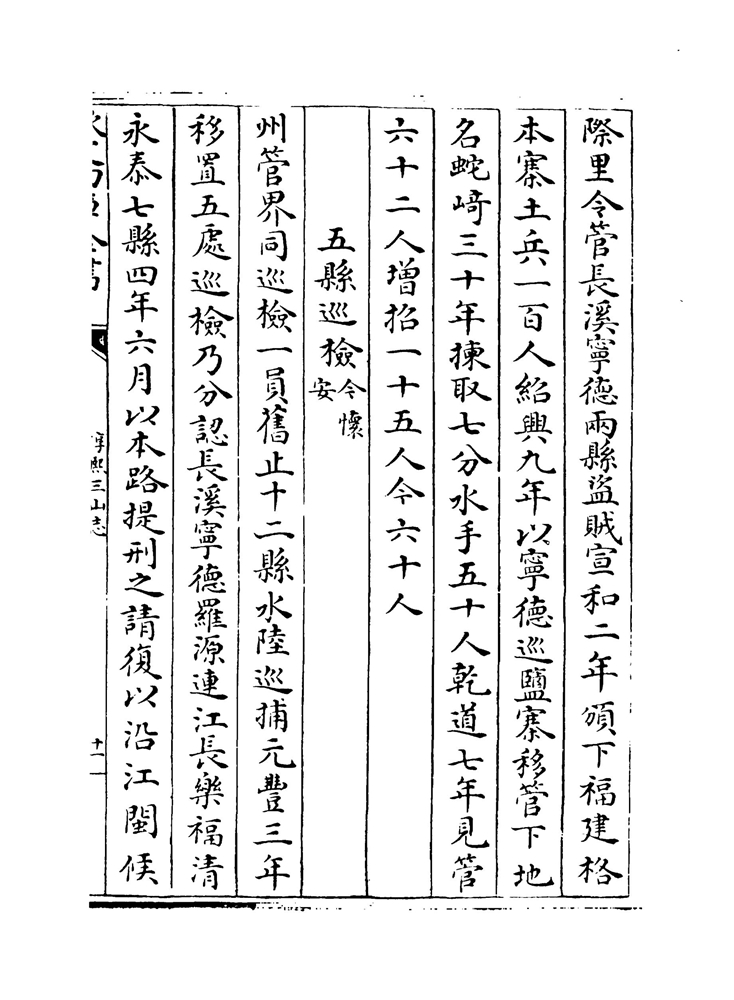 際里令管長溪寧德兩縣盜賊宣和二年頒下福建格
本寨土兵一百人紹興九年以寧德巡鹽寨移管下地
名蛇﨑三十年揀取七分水手五十人乾道七年見管
六十二人增招一十五人今六十人
五縣巡檢今懷安
州管界同巡檢一員舊止十二縣水陸巡捕元豐三年
移置五處巡檢乃分認長溪寧德羅源連江長樂福清
永泰七縣四年六月以本路提刑之請復以沿江閩候
淳熙三山志
十一